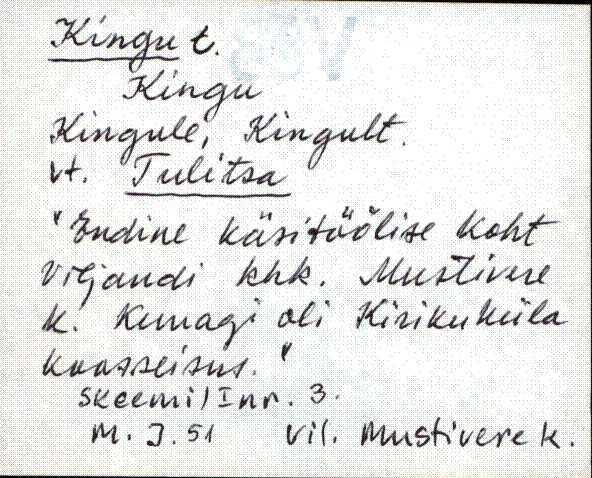 Kingu t.
Kingu
Kingule, Kingult.
vt. Tulitsa
"Endine käsitöölise koht
Viljandi khk. Mustivere
k. Kunagi oli Kirikuküla
koosseisus."
skeemil I nr. 3.
M. J. 51 Vil. Mustivere k.